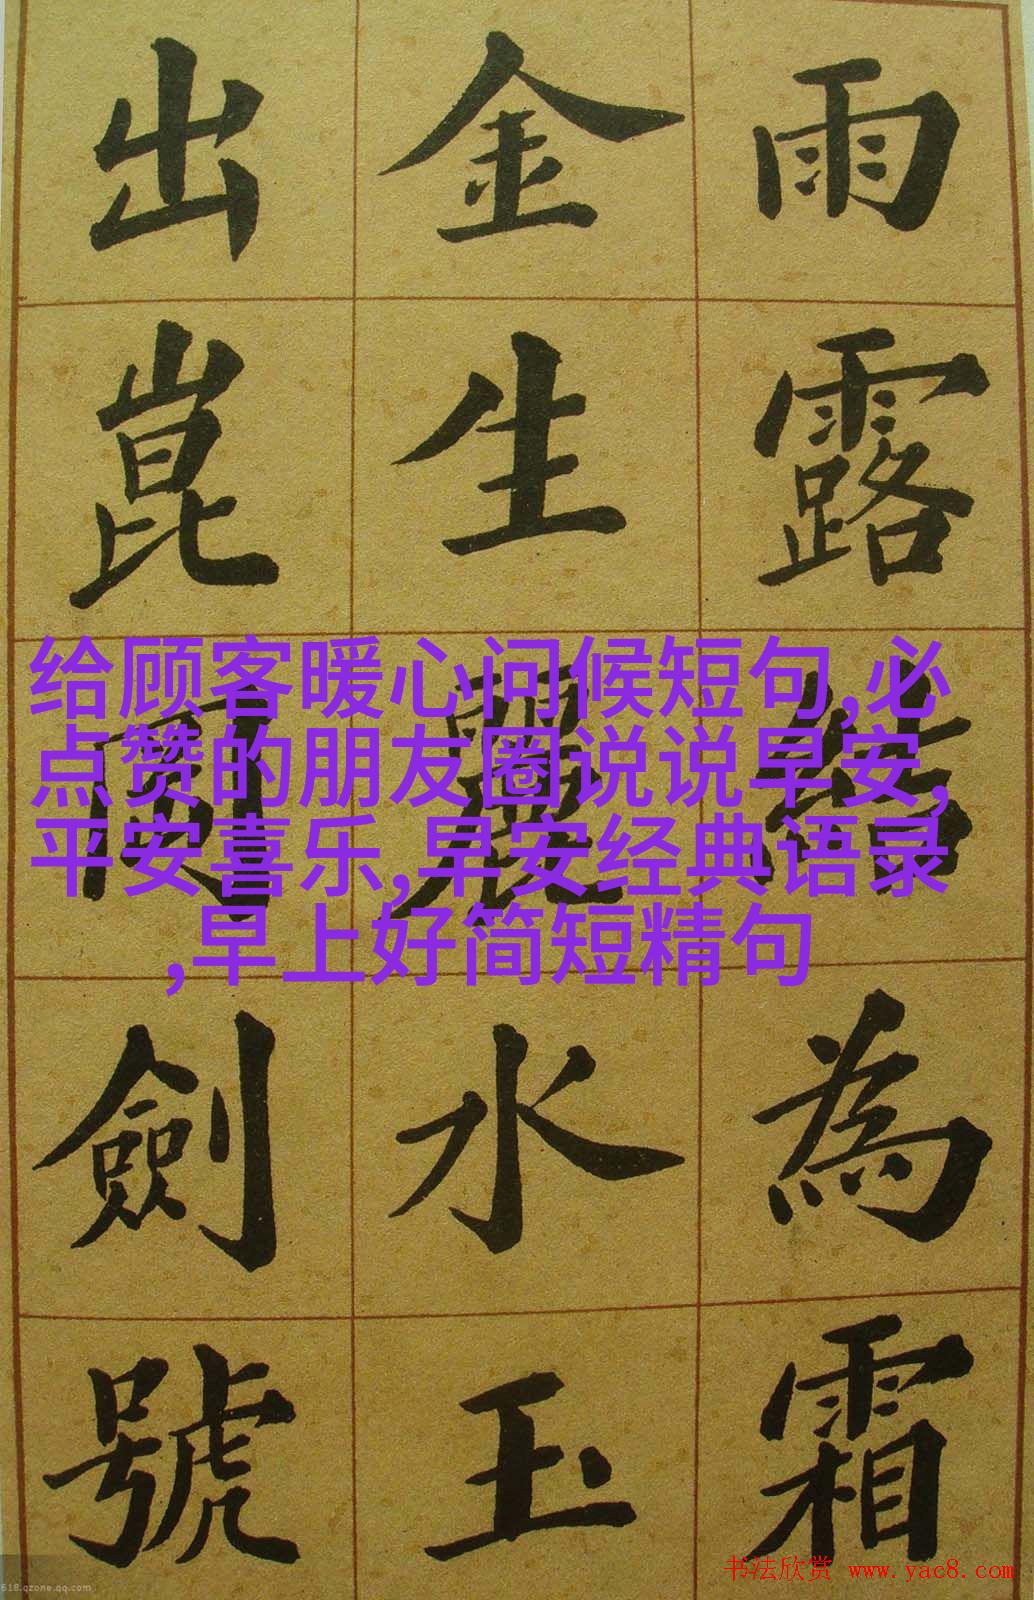 雨露結為霜
金生麗水玉
出崑岡劍號
给顾客暖心问候短句,必
点赞的朋友圈说说早安,
平安喜乐,早安经典语录
,早上好简短精句
书法欣赏 www.yac8.com
618.qzone.qq.com